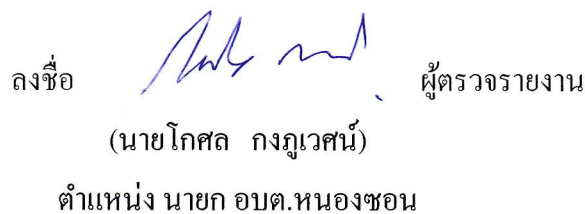 ลงชื่อ ผู้ตรวจรายงาน
(นายโกศล กงภูเวศน์)
ตำแหน่ง นายก อบต.หนองซอน